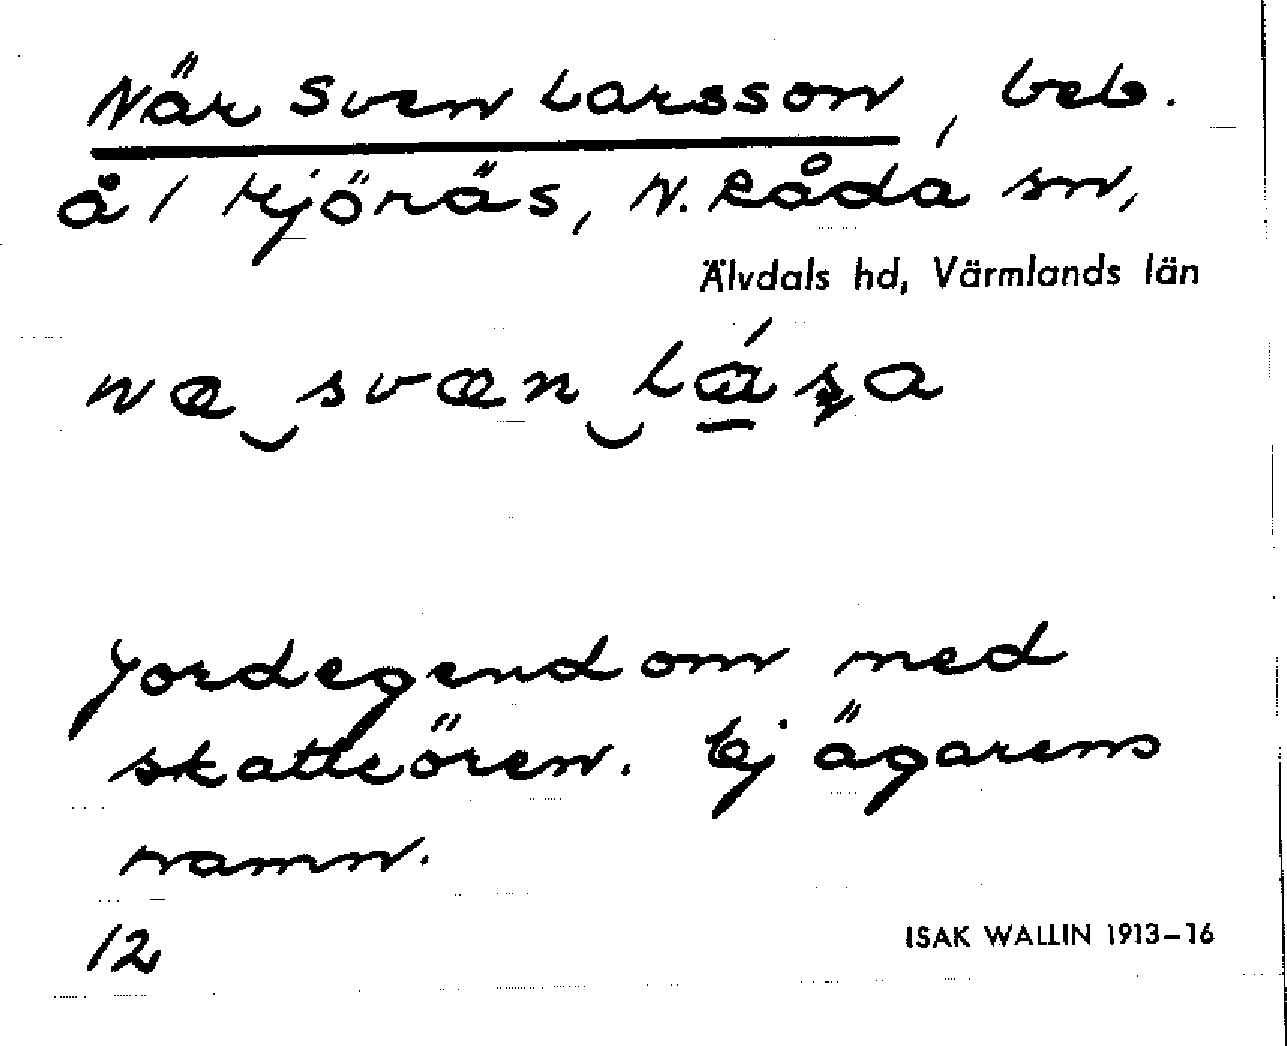 När Sven Larsson, beb.
å 1 Mjönäs, N. Råda sn,
Älvdals hd, Värmlands län
næ sven
Jordegendom med
skatteören. Ej ägarens
namn.
12
ISAK WALLIN 1913–16